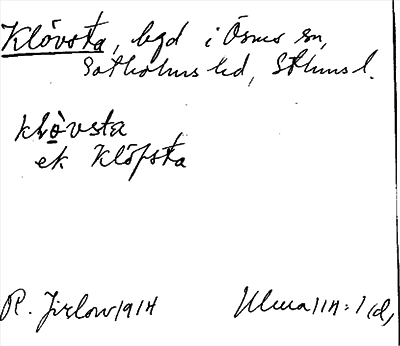 Klövsta, bgd i Ösmo sn,
Sotholms hd, Sthms l.
klò̱vsta
ek Klöfsta
R. Jirlow 1914
Ulma 111:1 (d)